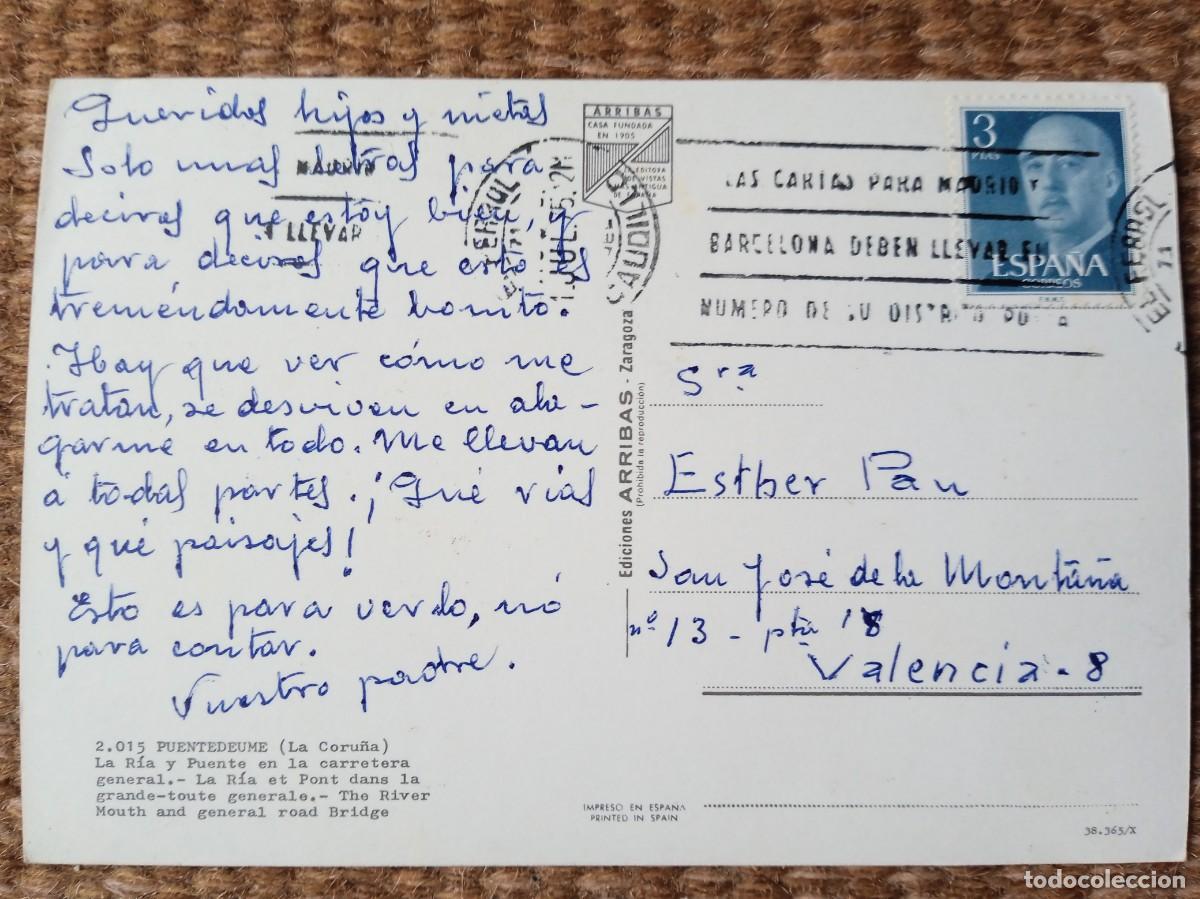 Queridos hijos y nietos
Solo unas letras para
deciros que estoy bien, y
para deciros que esto es
treméndamente bonito.
Hay que ver cómo me
tratan, se desviven en ala-
garme en todo. Me llevan
a todas partes. ¡Qué rías
y qué paisajes!
Esto es para verlo, nó
para contar.
Vuestro padre.
2.015 PUENTEDEUME (La Coruña)
La Ría y Puente en la carretera
general.- La Ría et Pont dans la
grande-toute generale.- The River
Mouth and general road Bridge
ARRIBAS
CASA FUNDADA
EN 1905
LA EDITORA
DE VISTAS
MAS ANTIGUA
DE ESPAÑA
MADRID
LLEVAR
EL FERROL
CAUDILLO
71
Ediciones ARRIBAS - Zaragoza
(Prohibida la reproducción)
IMPRESO EN ESPAÑA
PRINTED IN SPAIN
3
PTAS
ESPAÑA
CORREOS
F.N.M.T.
LAS CARTAS PARA MADRID Y
BARCELONA DEBEN LLEVAR EL
NUMERO DE SU DISTRITO
EL FERROL
71
Sra
Esther Pau
San José de la Montaña
nº 13 - pta 18
Valencia - 8
38.365/X
todocoleccion